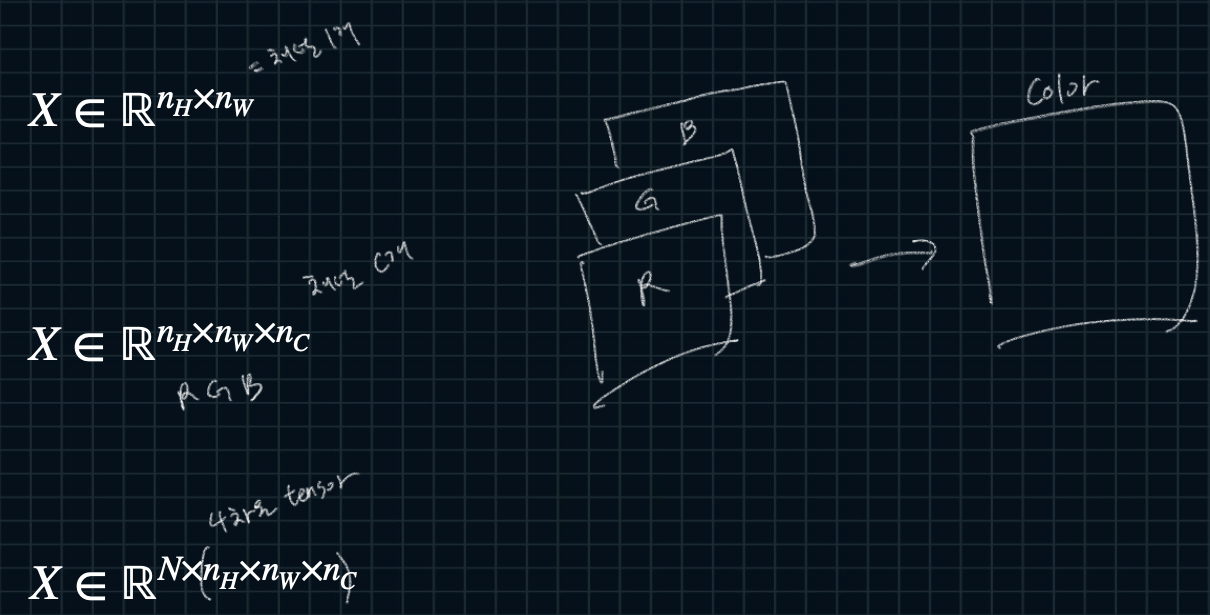 = 채널 1개
X ∈ ℝ^{n_H×n_W}
채널 C개
X ∈ ℝ^{n_H×n_W×n_C}
R G B
4차원 tensor
X ∈ ℝ^{N×(n_H×n_W×n_C)}
B
G
R
→
Color